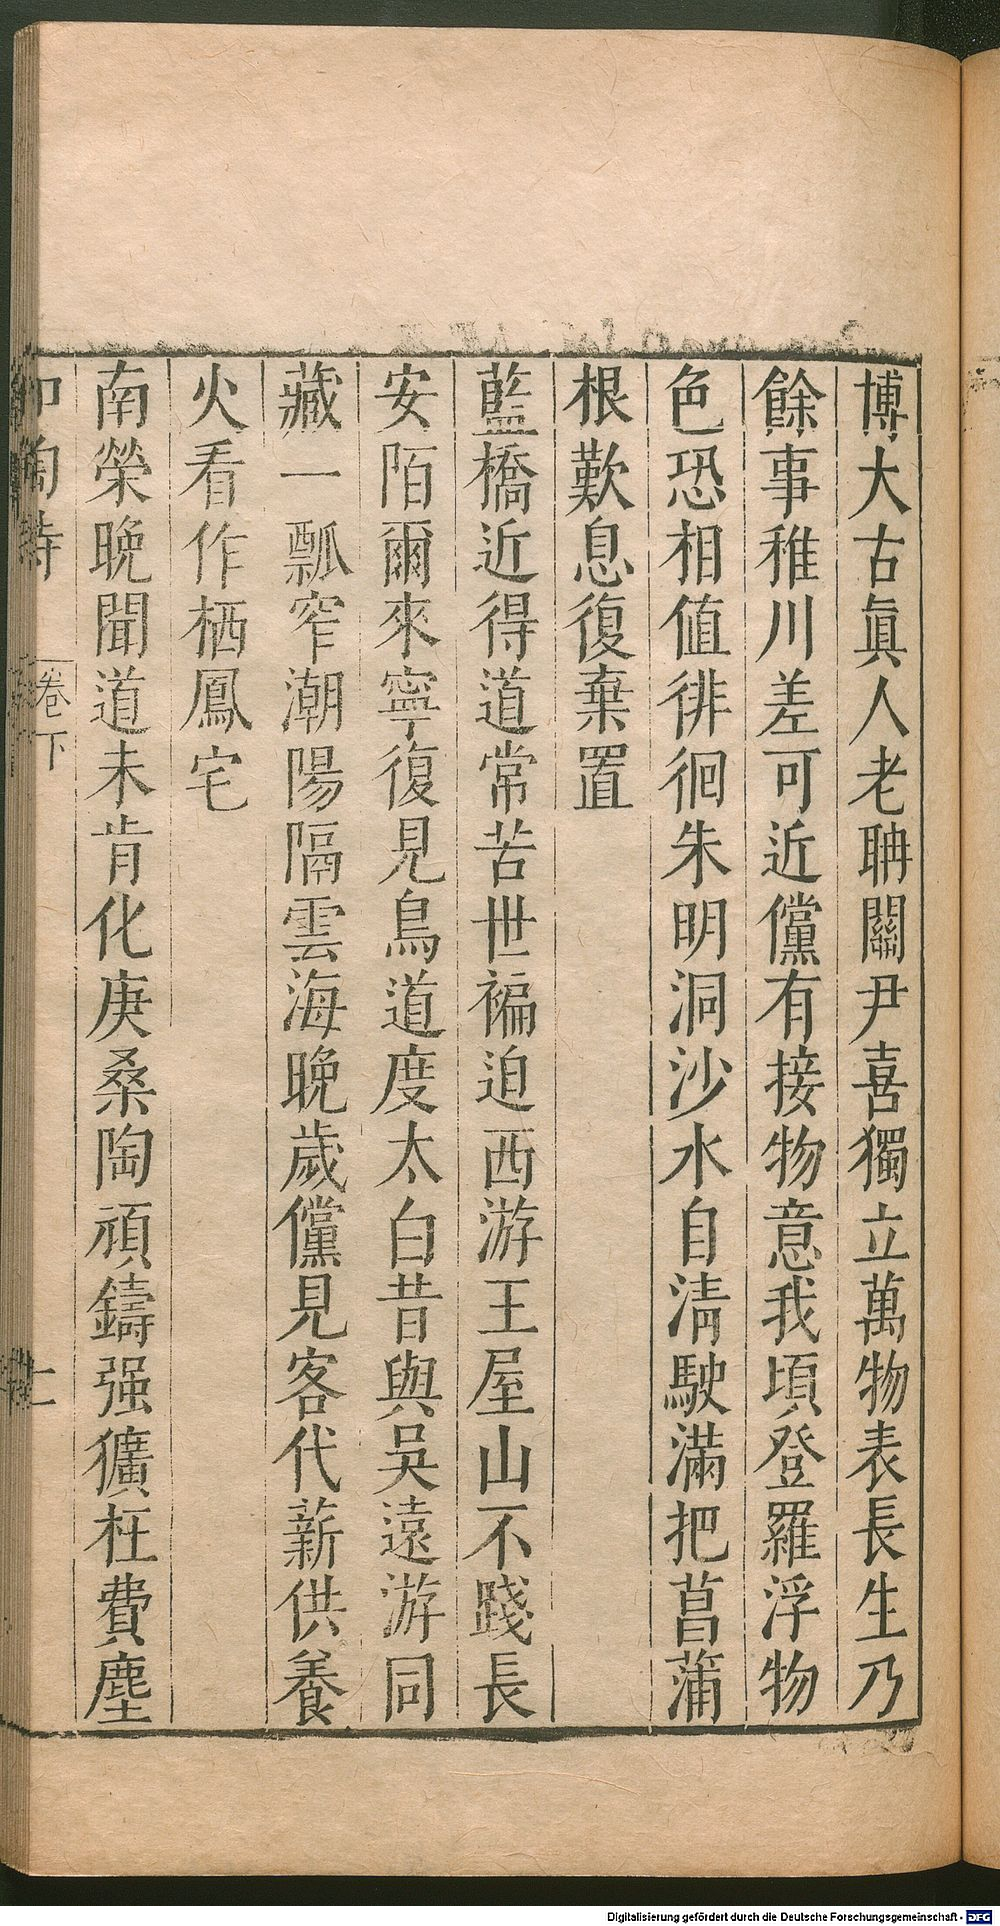 博大古眞人老聃關尹喜獨立萬物表長生乃
餘事稚川差可近儻有接物意我頃登羅浮物
色恐相值徘徊朱明洞沙水自清駛滿把菖蒲
根歎息復棄置
藍橋近得道常苦世褊迫西游王屋山不踐長
安陌爾來寧復見鳥道度太白昔與吳遠游同
藏一瓢窄潮陽隔雲海晚歲儻見客代薪供養
火看作栖鳳宅
南榮晚聞道未肯化庚桑陶頑鑄强獷枉費塵
和陶詩 卷下
Digitalisierung gefördert durch die Deutsche Forschungsgemeinschaft - DFG